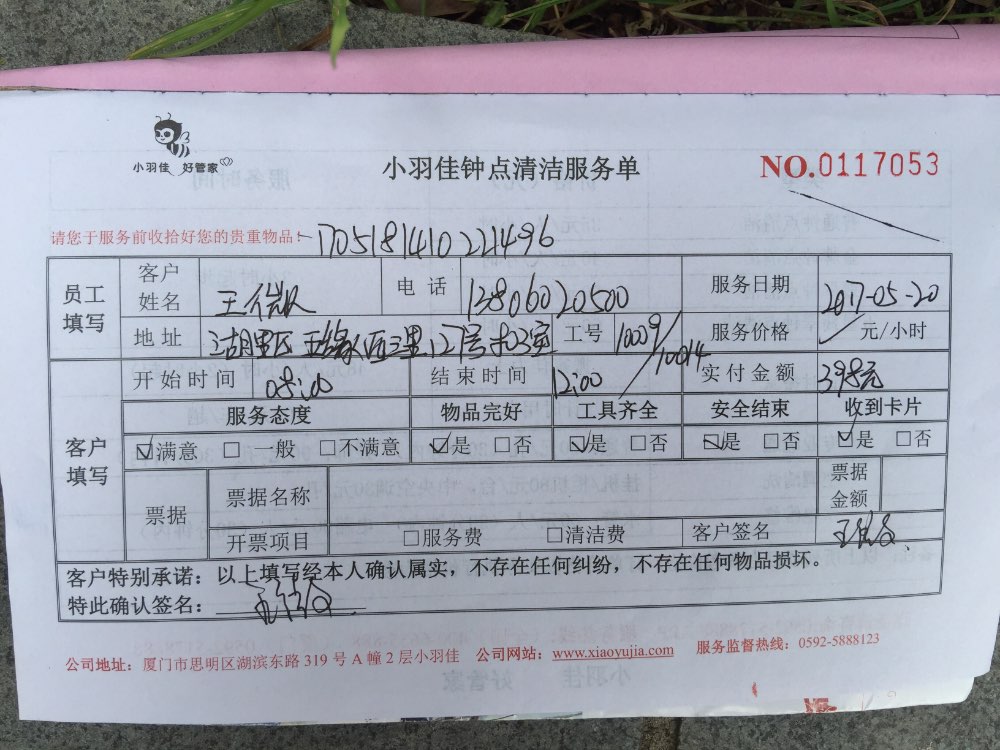 小羽佳 好管家
小羽佳钟点清洁服务单
NO.0117053
请您于服务前收拾好您的贵重物品:
1705181410221496
员工填写 客户姓名 王 电话 13806020500 服务日期 2017-05-20
地址 湖里区 西里27号403室 工号 1009/10014 服务价格 / 元/小时
开始时间 08:00 结束时间 12:00 实付金额 398元
客户填写 服务态度 物品完好 工具齐全 安全结束 收到卡片
☑满意 □一般 □不满意 ☑是 □否 ☑是 □否 ☑是 □否 ☑是 □否
票据 票据名称 票据金额
开票项目 □服务费 □清洁费 客户签名
客户特别承诺：以上填写经本人确认属实，不存在任何纠纷，不存在任何物品损坏。
特此确认签名：
公司地址：厦门市思明区湖滨东路 319 号 A 幢 2 层小羽佳 公司网站：www.xiaoyujia.com 服务监督热线：0592-5888123